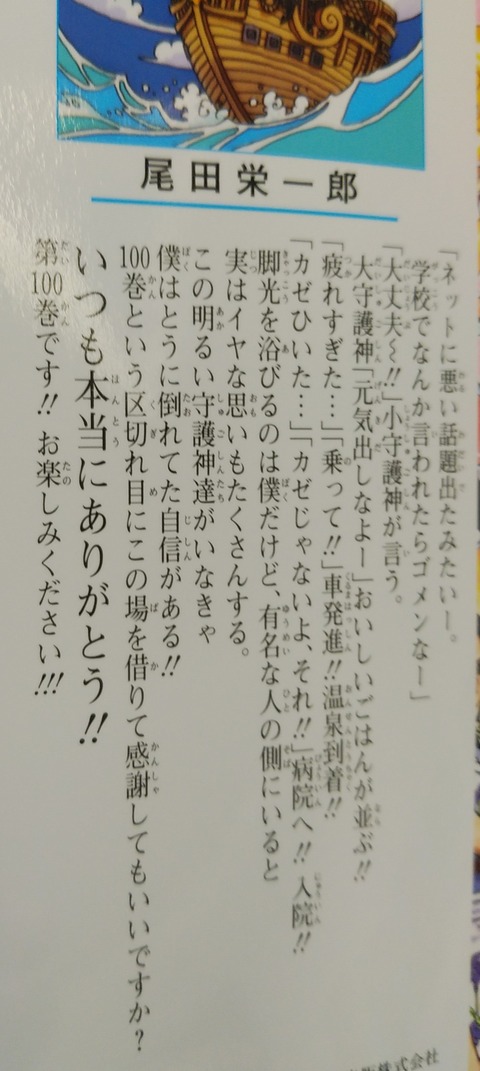 尾田栄一郎
「ネットに悪い話題出たみたいー。
学校でなんか言われたらゴメンなー」
「大丈夫〜!!」小守護神が言う。
大守護神「元気出しなよー」おいしいごはんが並ぶ!!
「疲れすぎた…」「乗って!!」車発進!!温泉到着!!
「カゼひいた…」「カゼじゃないよ、それ!!」病院へ!!入院!!
脚光を浴びるのは僕だけど、有名な人の側にいると
実はイヤな思いもたくさんする。
この明るい守護神達がいなきゃ
僕はとうに倒れてた自信がある!!
100巻という区切れ目にこの場を借りて感謝してもいいですか?
いつも本当にありがとう!!
第100巻です!! お楽しみください!!!
株式会社